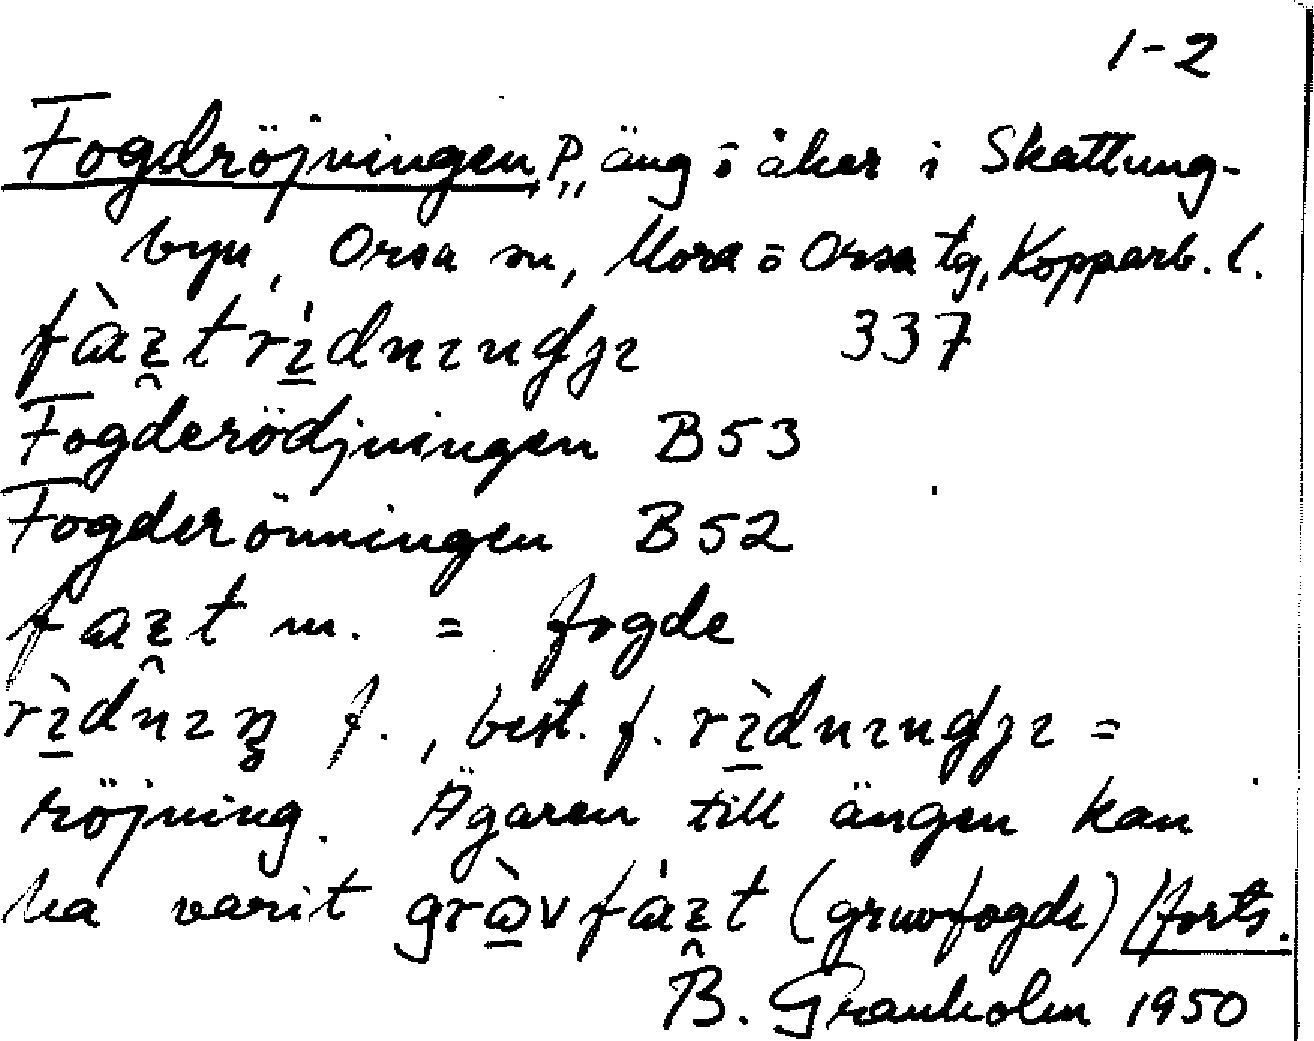 1-2
Fogdröjningen, P. äng o åker i Skattung-
byn, Orsa sn, Mora o Orsa tg, Kopparb. l.
337
Fogderödjningen B53
Fogderönningen B52
m. = fogde
f., best. f. =
röjning. Ägaren till ängen kan
ha varit (gruvfogde) /forts.
B. Granholm 1950